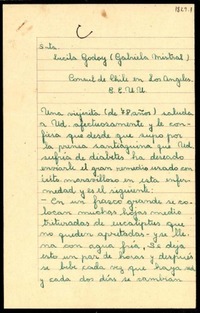 C
Srta.
Lucila Godoy (Gabriela Mistral)
Consul de Chile en Los Angeles.
E.E.U.U.
Una viejecita (de 78 años) saluda
a Ud. afectuosamente y le con-
fiesa que desde que supo por
la prensa santiaguina que Ud.
sufría de diabetes ha deseado
enviarle el gran remedio usado con
éxito maravilloso en esta enfer-
medad y es el siguiente:
- En un frasco grande se co-
locan muchas hojas medio
trituradas de eucaliptus que
no queden apretadas y se lle-
na con agua fría. Se deja
esto un par de horas y después
se bebe cada vez que haya sed
y cada dos días se cambian